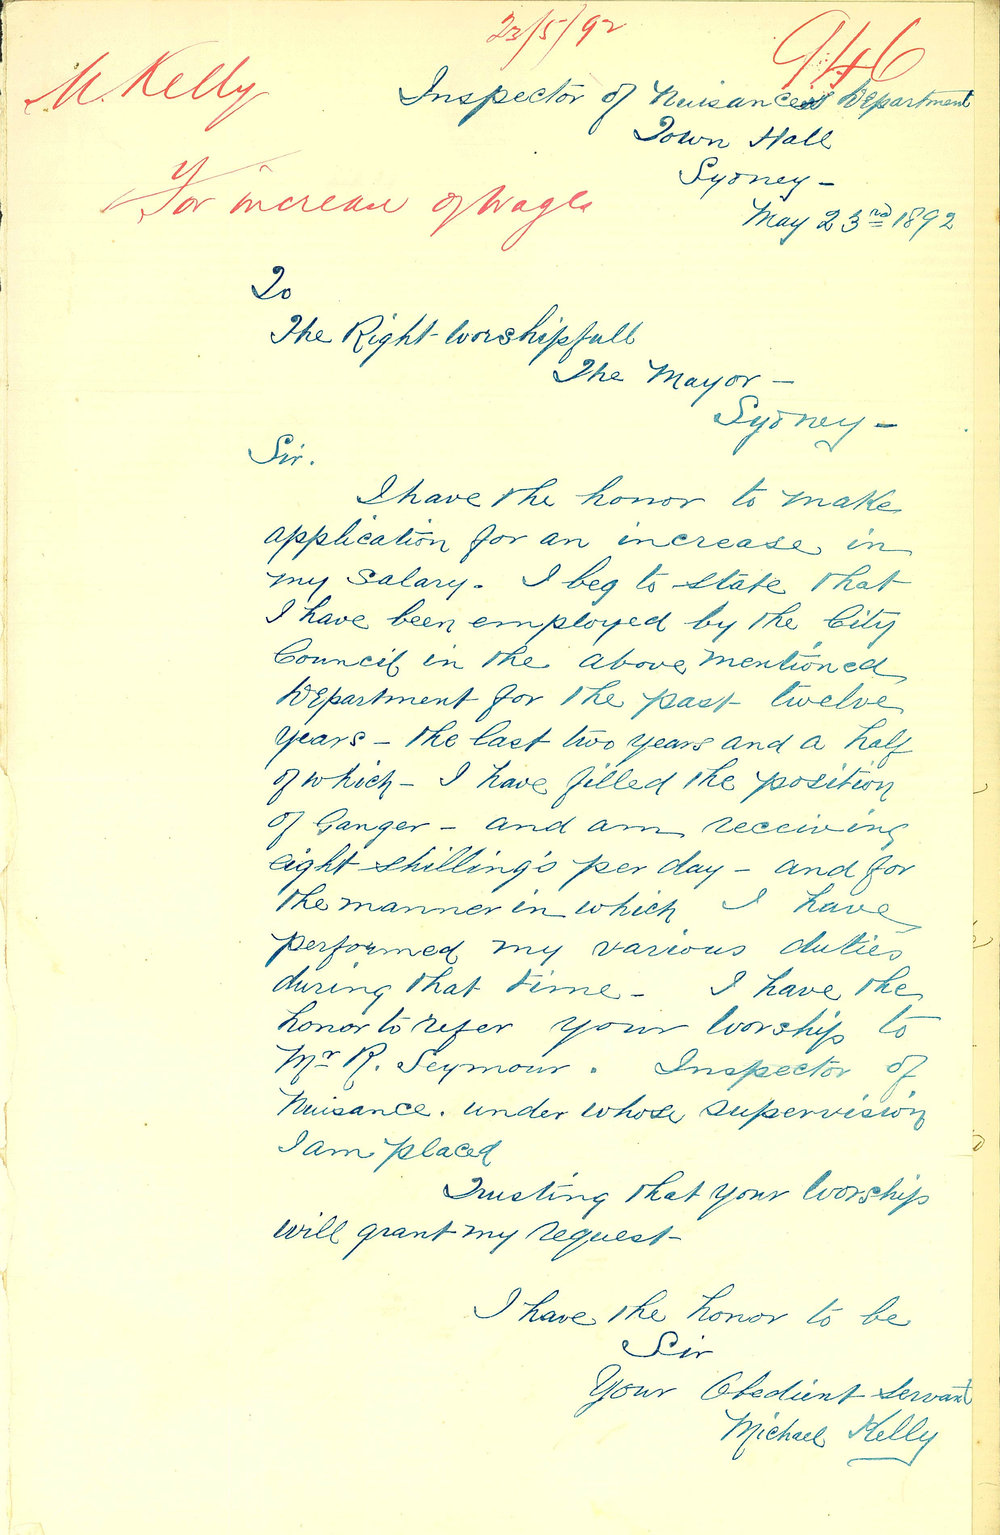 23/5/92
946
M. Kelly
Inspector of Nuisances Department
Town Hall
Sydney –
For increase of wages
May 23rd 1892
To
The Right Worshipfull
The Mayor –
Sydney –
Sir.
I have the honor to make
application for an increase in
my salary. I beg to state that
I have been employed by the City
Council in the above mentioned
Department for the past twelve
years – the last two years and a half
of which – I have filled the position
of Ganger – and am receiving
eight shilling's per day – and for
the manner in which I have
performed my various duties
during that time – I have the
honor to refer your Worship to
Mr R. Seymour. Inspector of
Nuisance. under whose supervision
I am placed
Trusting that your Worship
will grant my request –
I have the honor to be
Sir
Your Obedient Servant
Michael Kelly